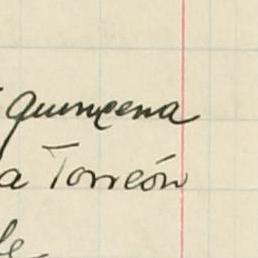 quincena
a Torreón